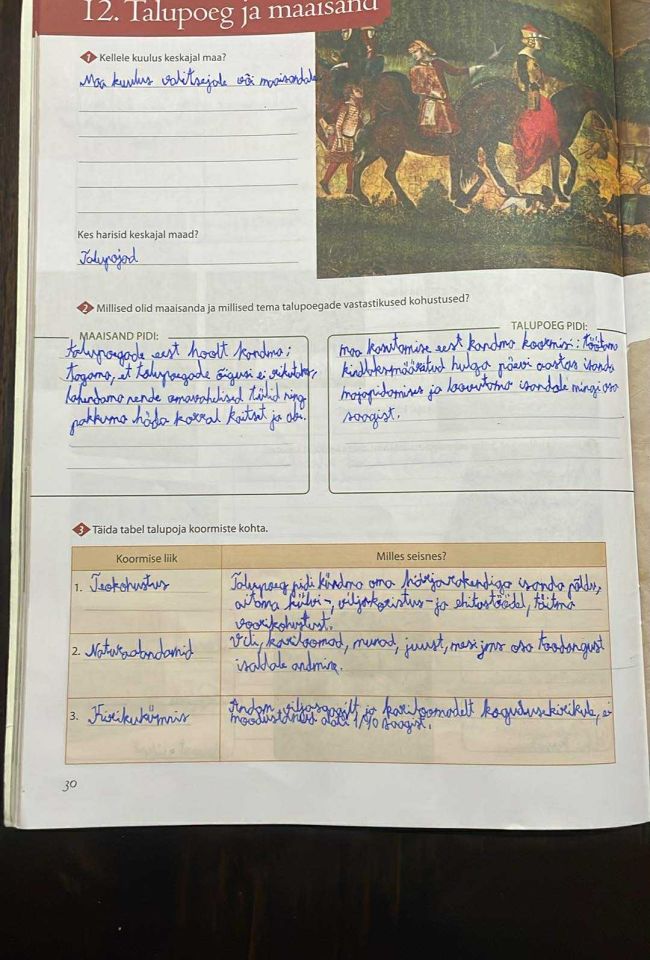 12. Talupoeg ja maaisand
1 Kellele kuulus keskajal maa?
Maa kuulus valitsejale või maaisandale
Kes harisid keskajal maad?
Talupojad
2 Millised olid maaisanda ja millised tema talupoegade vastastikused kohustused?
MAAISAND PIDI:
talupoegade eest hoolt kandma;
tagama, et talupoegade õigusi ei rikutaks,
lahendama nende omavahelised tülid ning
pakkuma häda korral kaitset ja abi.
TALUPOEG PIDI:
maa kasutamise eest kandma koormisi: töötama
kindlaksmääratud hulga päevi aastas isanda
majapidamises ja loovutama isandale mingi osa
saagist.
3 Täida tabel talupoja koormiste kohta.
Koormise liik
Milles seisnes?
1. Teokohustus
Talupoeg pidi kündma oma härjarakendiga isanda põldu,
aitama külvi-, viljakoristus- ja ehitustöödel, täitma
voorikohustust.
2. Naturaalandamid
Vili, kariloomad, munad, juust, mesi jms osa toodangust
isandale andmine.
3. Kirikukümnis
Andam viljasaagilt ja kariloomadelt kogudusekirikule, ei
moodustanud alati 1/10 saagist.
30